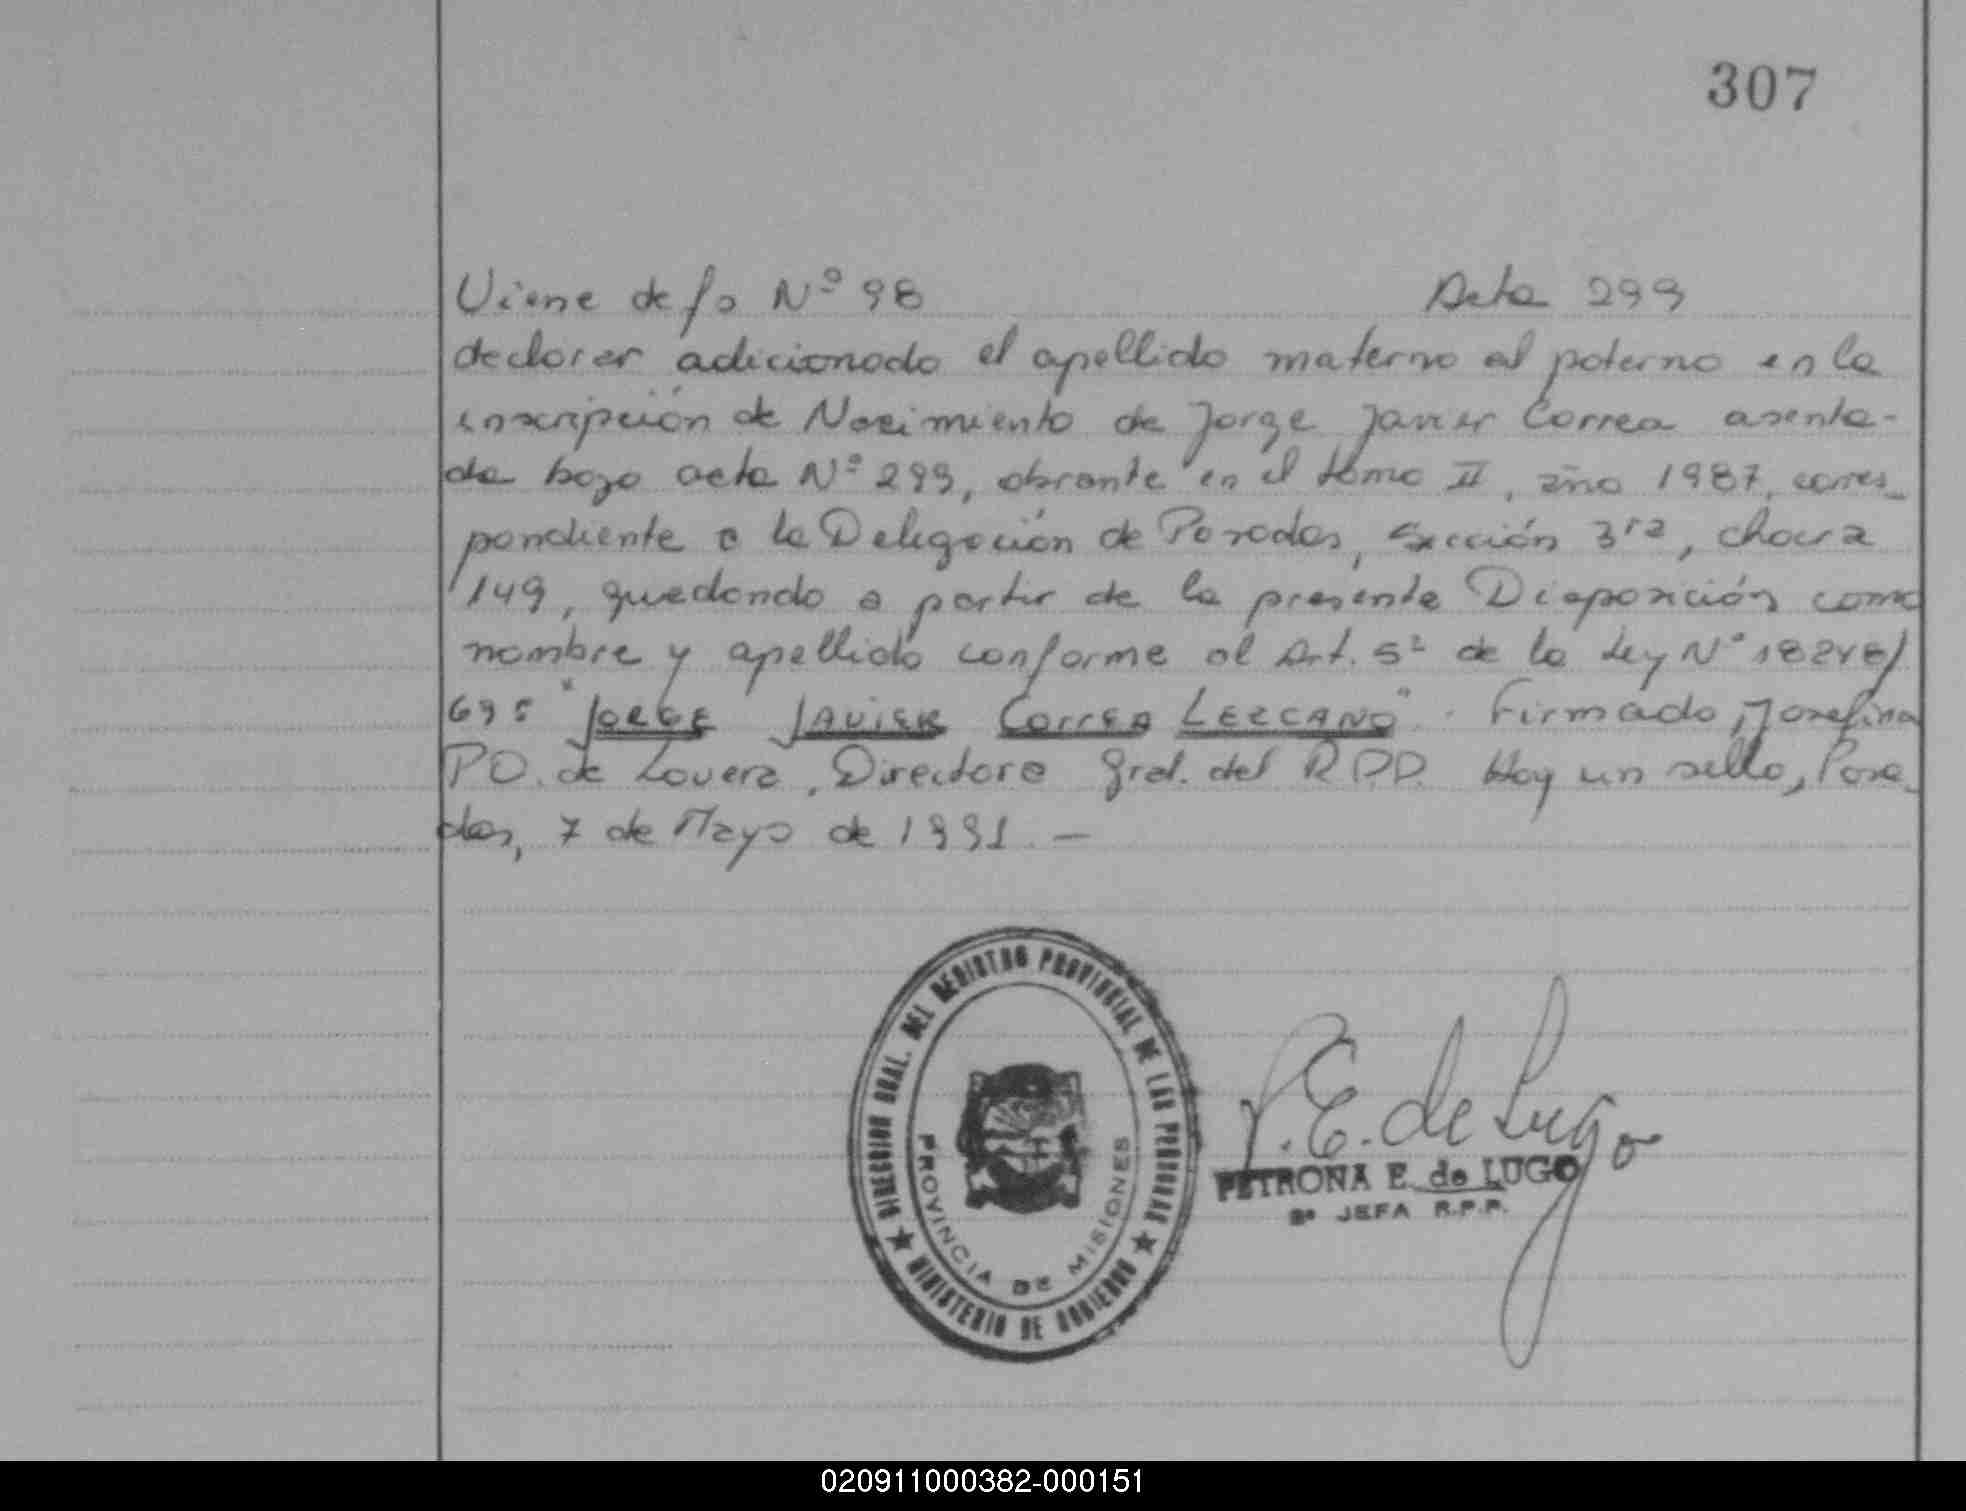 307
Viene de fs Nº 98 Acta 299
declarar adicionado el apellido materno al paterno en la
inscripción de Nacimiento de Jorge Javier Correa asenta-
da bajo acta Nº 299, obrante en el tomo II, año 1987, corres-
pondiente a la Delegación de Posadas, Sección 3ra, chacra
149, quedando a partir de la presente Disposición como
nombre y apellido conforme al Art. 5º de la Ley Nº 18248/
69: "JORGE JAVIER CORREA LEZCANO". Firmado, Josefina
P.O. de Lovera, Directora Gral. del R.P.P. Hay un sello, Posa-
das, 7 de Mayo de 1991. —
DIRECCION GRAL. DEL REGISTRO PROVINCIAL DE LAS PERSONAS
PROVINCIA DE MISIONES
MINISTERIO DE GOBIERNO
P.E. de Lugo
PETRONA E. de LUGO
JEFA R.P.P.
020911000382-000151